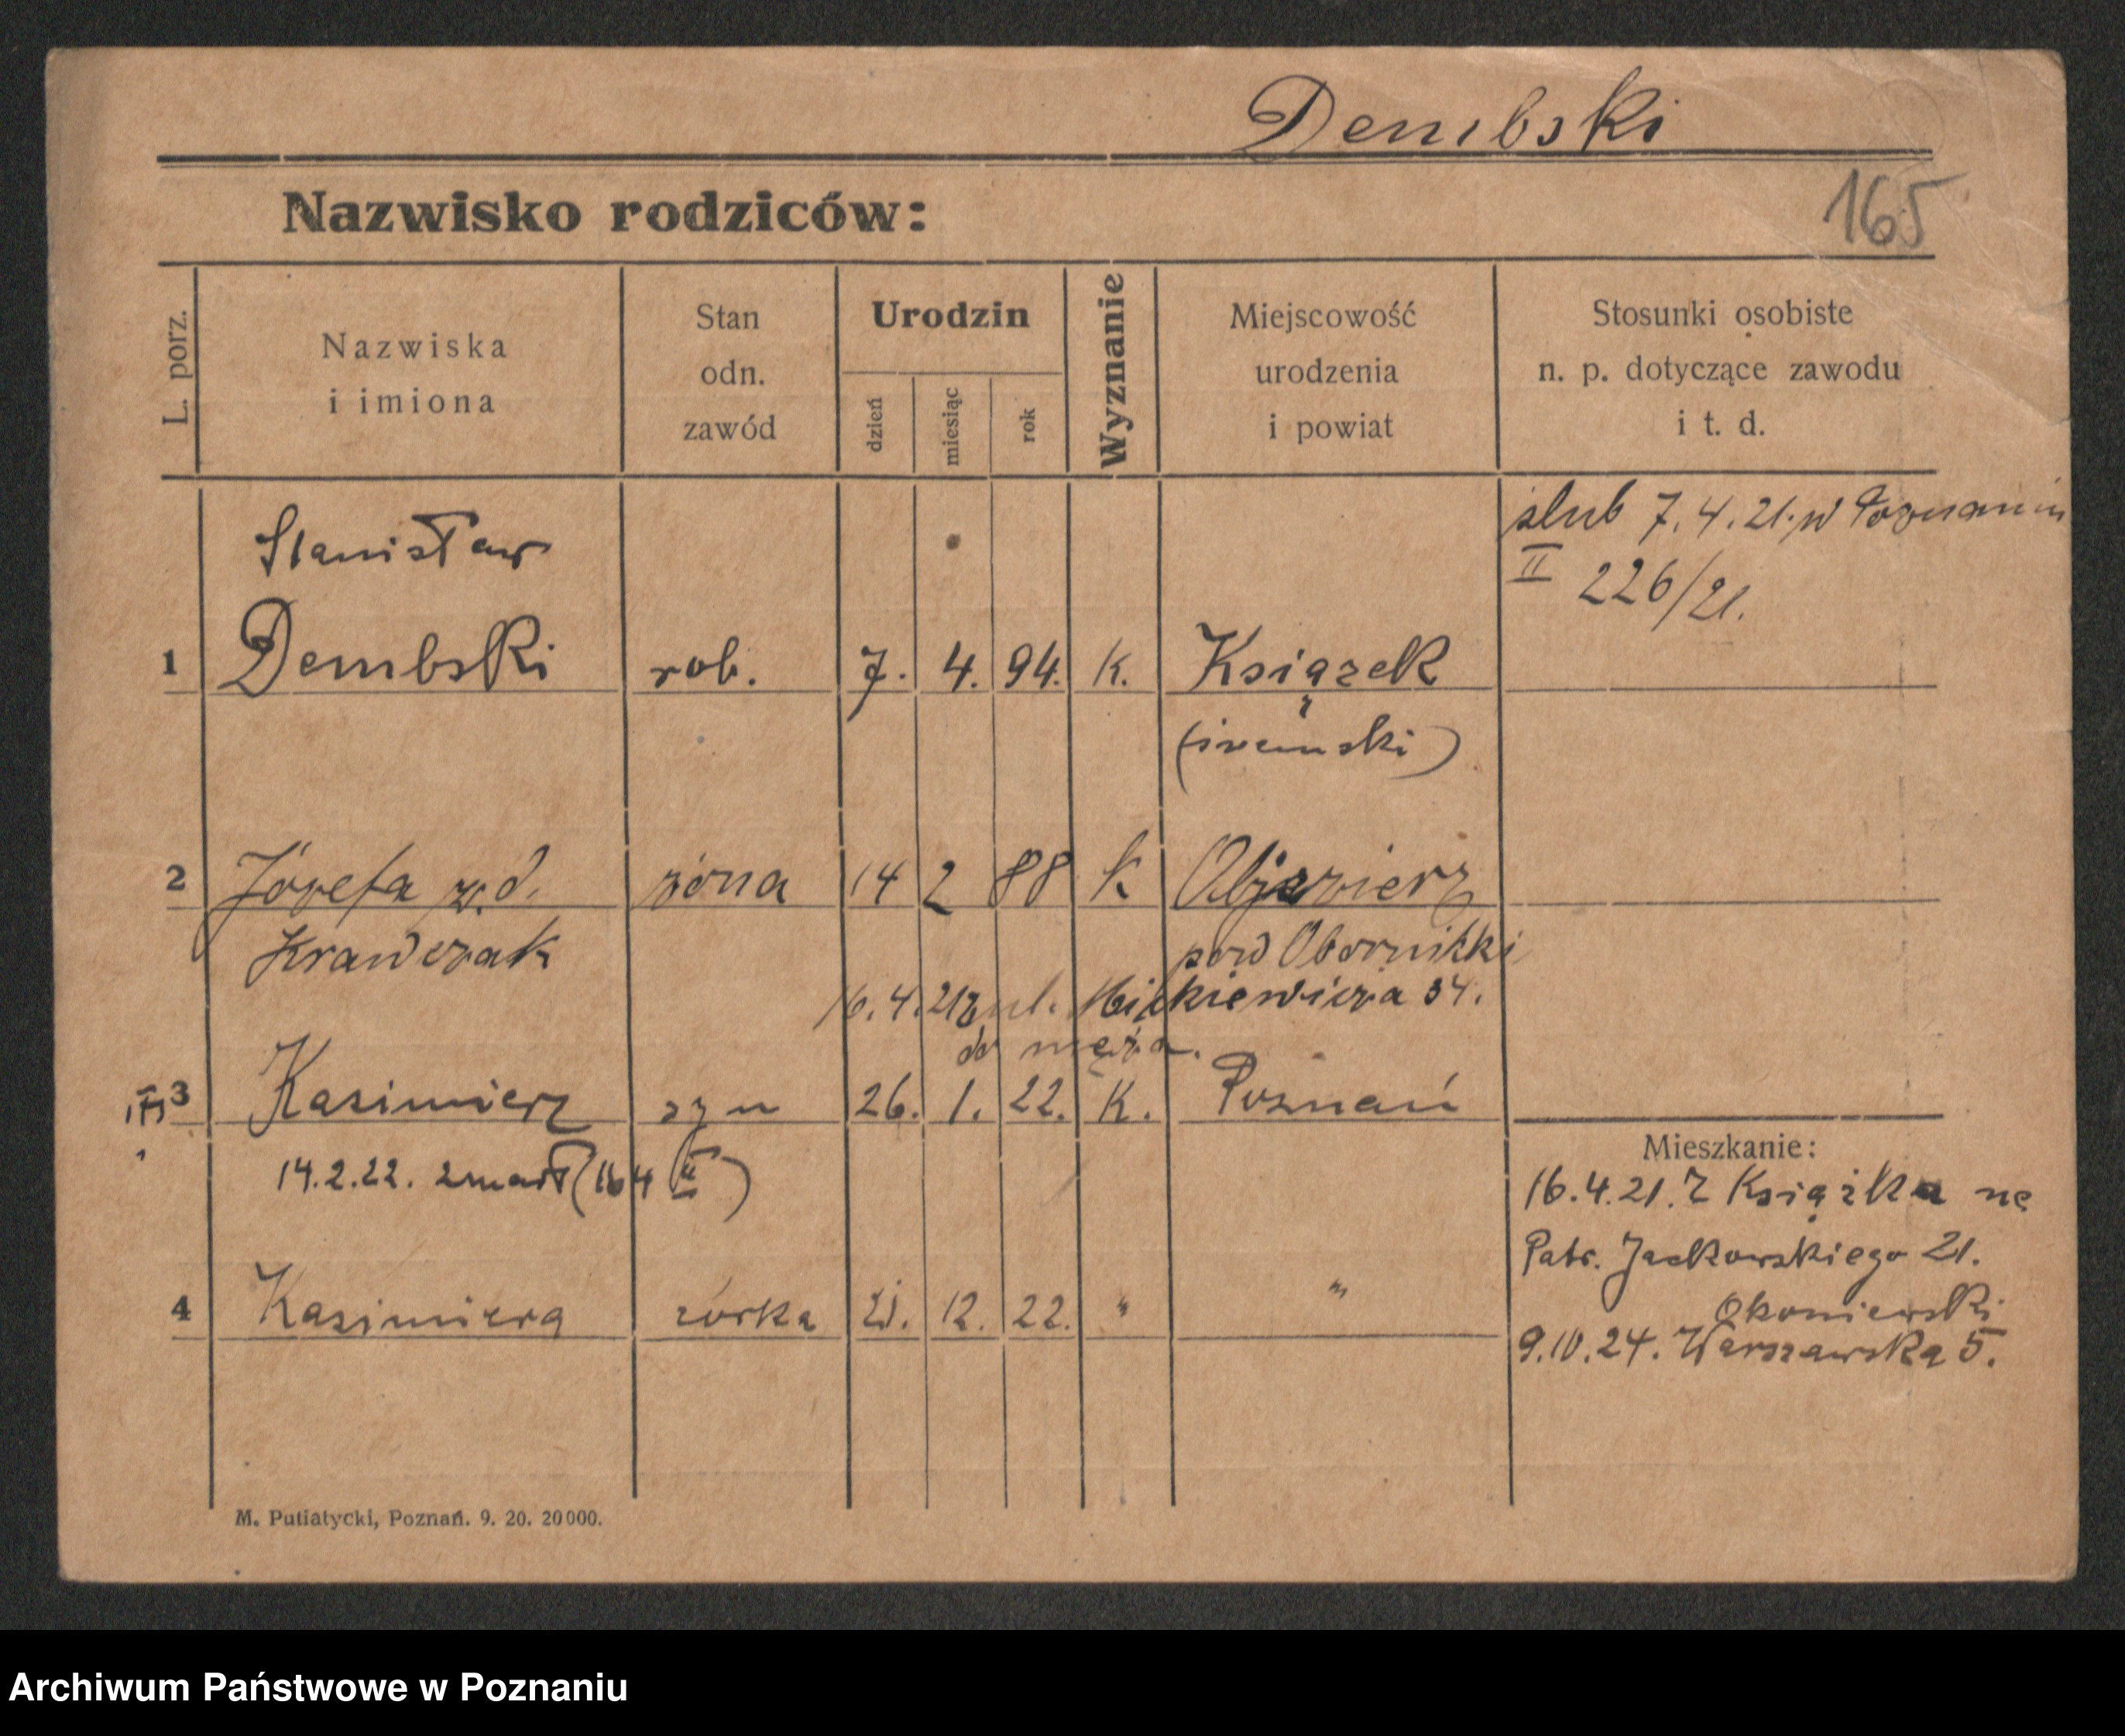 Dembski
Nazwisko rodziców:
165
L. porz.
Nazwiska
i imiona
Stan
odn.
zawód
Urodzin
dzień
miesiąc
rok
Wyznanie
Miejscowość
urodzenia
i powiat
Stosunki osobiste
n. p. dotyczące zawodu
i t. d.
ślub 7.4.21. w Poznaniu
II 226/21.
Stanisław
1 Dembski rob. 7. 4. 94. K. Książek
(śremski)
2 Józefa ur. żona 14 2 88 K Objezierz
Krawczak pow Oborniki
16.4.21 z ul. Mickiewicza 34.
do męża.
3 Kasimierz syn 26. 1. 22. K. Poznań
14.2.22. zmarł (164 II)
Mieszkanie:
16.4.21. z Książka na
Patr. Jackowskiego 21.
Okoniewski
4 Kasimiera córka 21. 12. 22. " "
9.10.24. Warszawska 5.
M. Putiatycki, Poznań. 9. 20. 20000.
Archiwum Państwowe w Poznaniu